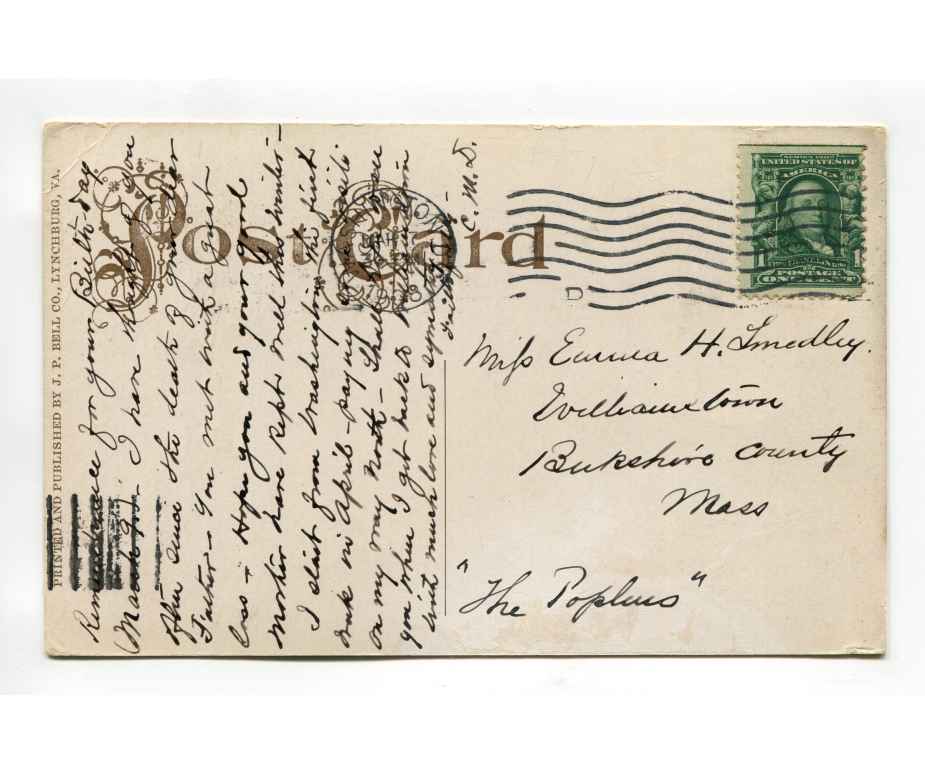 PRINTED AND PUBLISHED BY J. P. BELL CO., LYNCHBURG, VA.
Post Card
SERIES 1902
UNITED STATES OF
AMERICA
POSTAGE
ONE CENT
D
Remembrance for your Birth day
(March 9). I have thought of you
often since the death of your dear
Father - You met with a great
loss - Hope you and your good
Mother have kept well this winter -
I start from Washington the first
week in April - paying some visits
on my way North - Shall
you when I get back to
with much love and sympathy
C. M. D.
Miss Emma H. Smedley.
Williamstown
Berkshire County
Mass
"The Poplars"